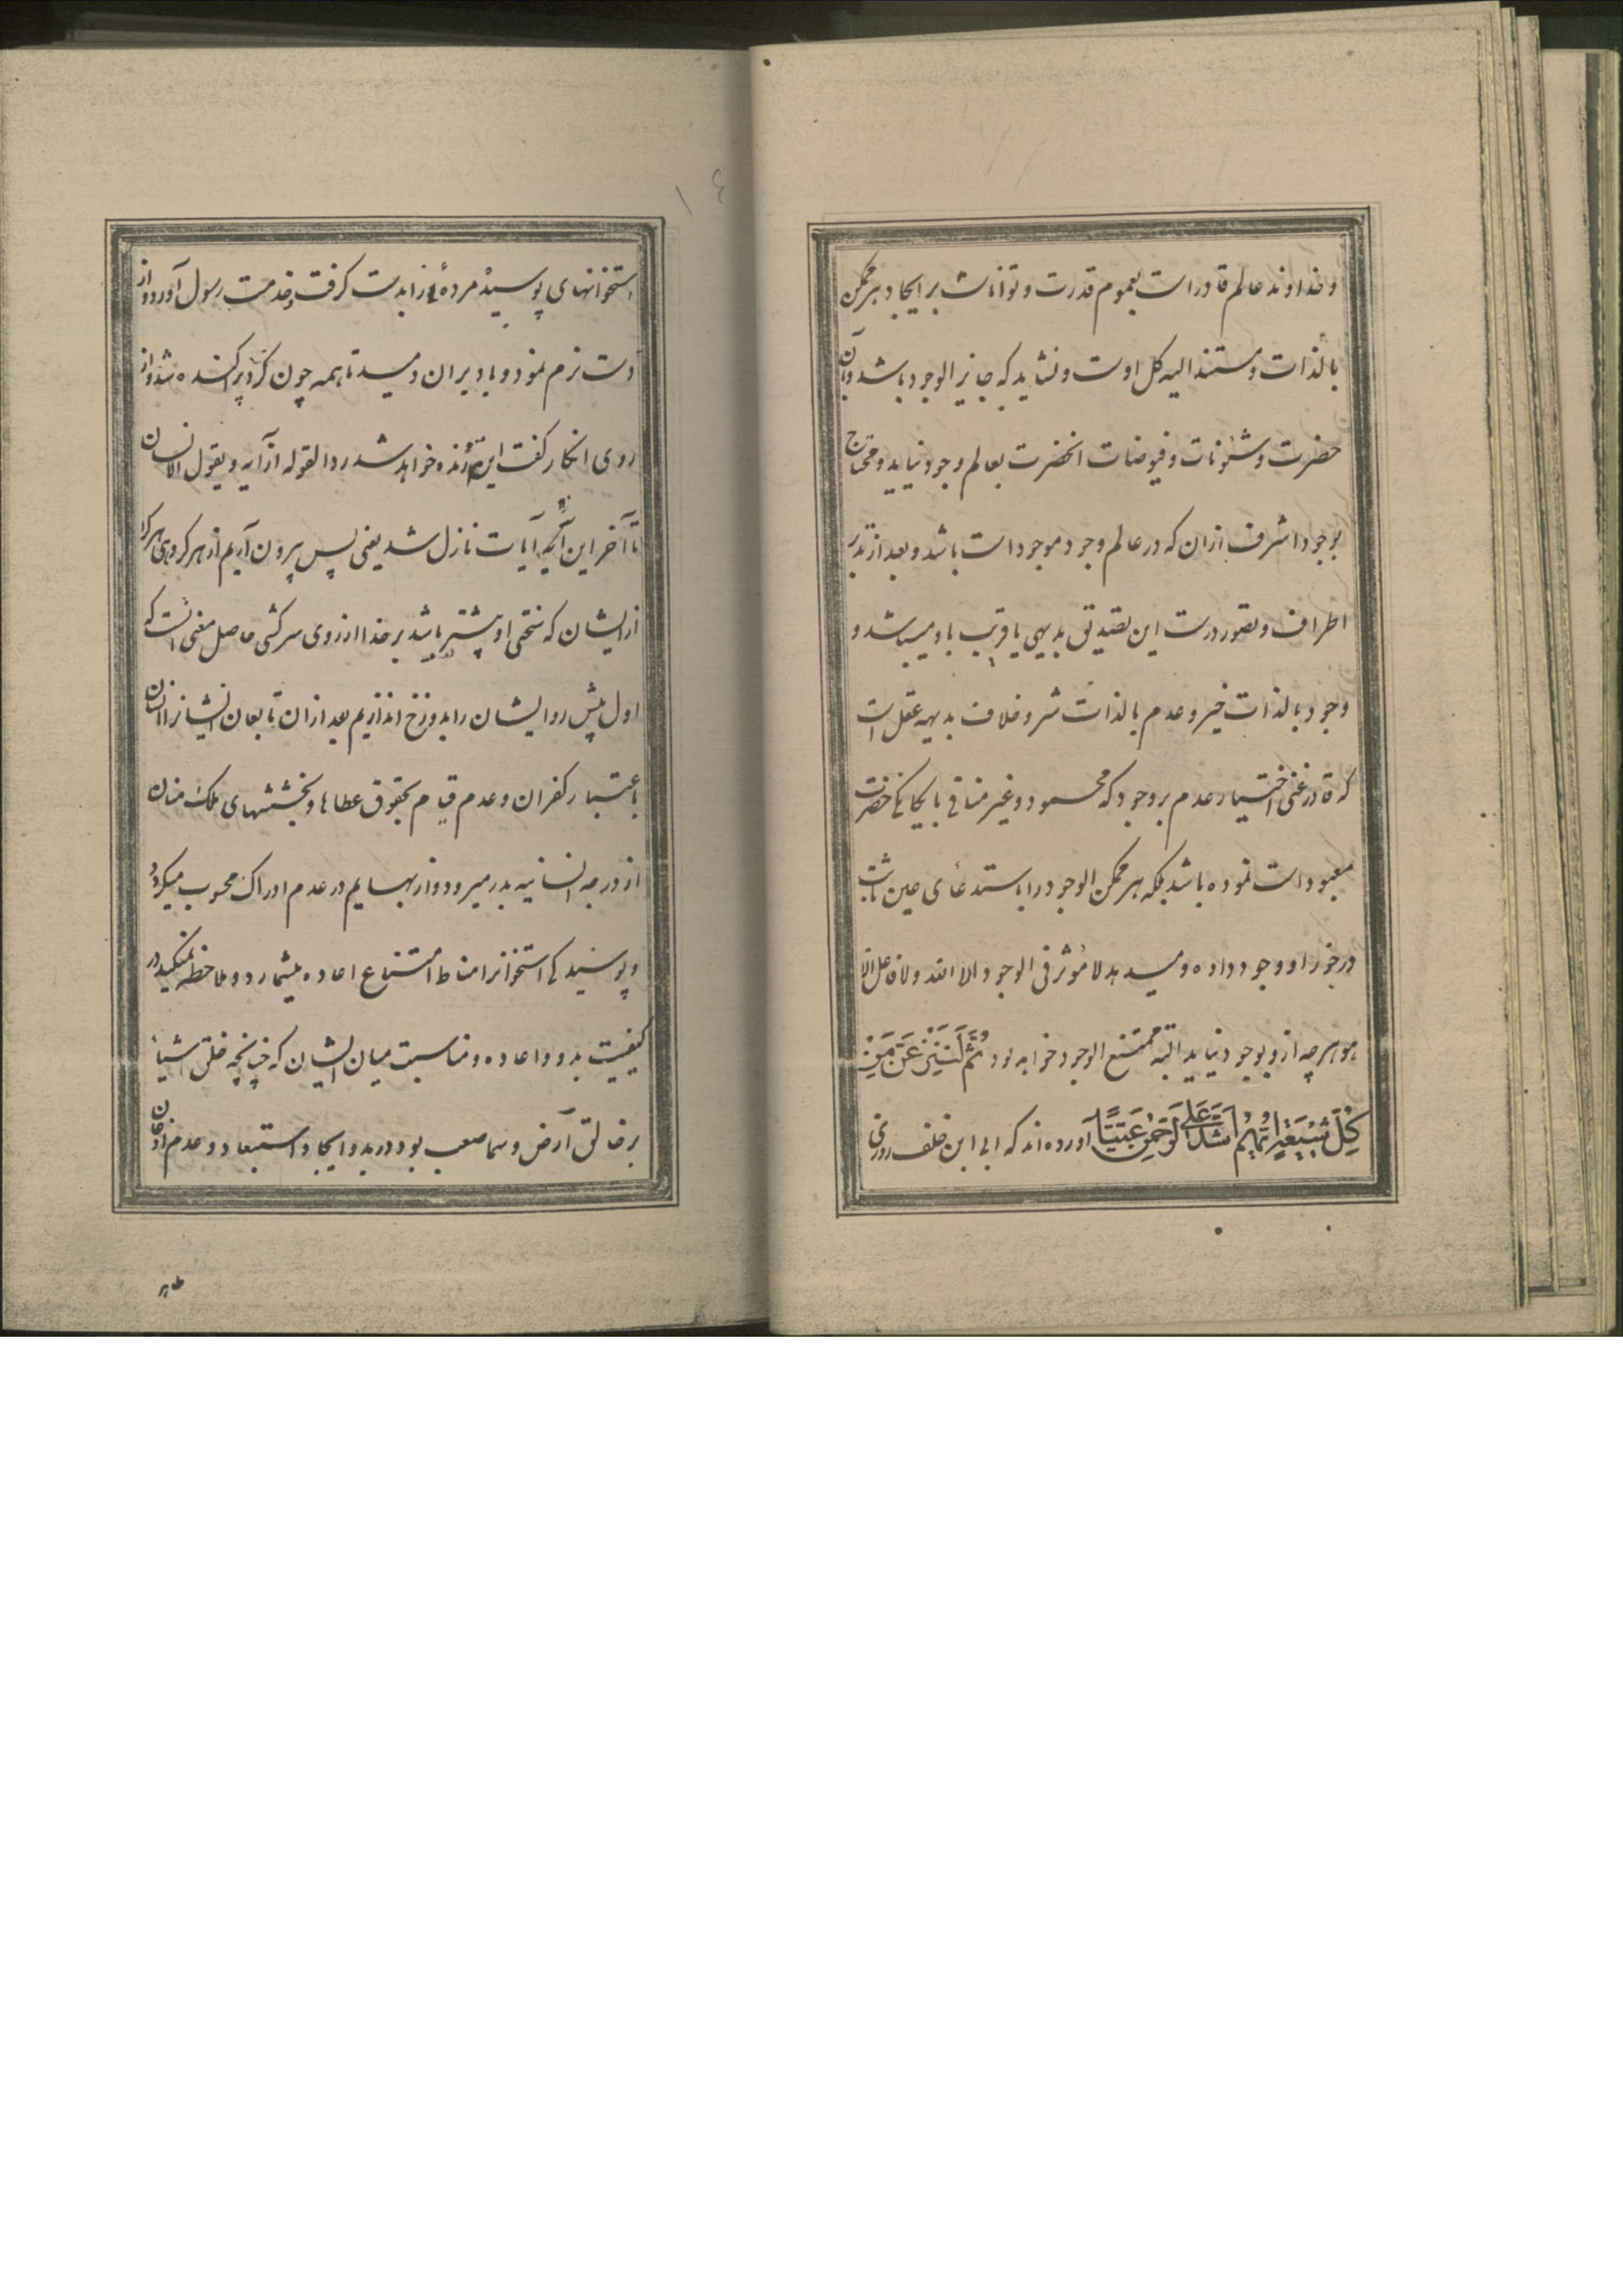 و خداوند عالم قادر است بعموم قدرت و تواناست بر ایجاد هر ممکن
بالذات و مستند الیه کل اوست و نشاید که جایز الوجود باشد و آن
حضرت و شئونات و فیوضات انحضرت بعالم وجود نیاید و محتاج
بوجود اشرف ازان که در عالم وجود موجود است باشد و بعد از تدبر
اطراف و تصور درست این تصدیق بدیهی یا قریب باو میباشد و
وجود بالذات خیر و عدم بالذات شر و خلاف بدیهه عقل است
که قادر غنی اختیار عدم بر وجود که محمود و غیر منافی با یکانکی حضرت
معبود است نموده باشد بلکه هر ممکن الوجود را باستدعای عین ثابت
درخور او وجود داده و میدهد لا مؤثر فی الوجود الا الله ولا فاعل الا
هو و هرچه ازو بوجود نیاید البته ممتنع الوجود خواهد بود ثم لننزعن من
کل شیعة ایهم اشد علی الرحمن عتیا آورده اند که ابی ابن خلف روزی
١٤
استخوانهای پوسیده مردهٔ را بدست کرفت و بخدمت رسول آورد و از
دست نرم نمود و باد بران دمید تا همه چون کرد پراکنده شد و از
روی انکار کفت این زنده خواهد شد ردا لقوله از آیه و یقول الانسان
تا آخر این آیات نازل شد یعنی پس بیرون آریم از هر کروهی هر کرا
ازیشان که سختی او بیشتر باشد بر خدا از روی سرکشی حاصل معنی انست که
اول پیش روا یشان را بدوزخ اندازیم بعد ازان تابعان ایشانرا انسان
باعتبار کفران و عدم قیام بحقوق عطاها و بخششهای ملک منان
از درجه انسانیه بدر میرود و از بهایم در عدم ادراک محسوب میکردد
و پوسیدکی استخوانرا مناط امتناع اعاده میشمارد و ملاحظه نمیکند در
کیفیت بدو و اعاده و مناسبت میان ایشان که چنانچه خلق اشیا
بر خالق آرض و سما صعب بود در بدو ایجاد استبعاد و عدم اذعان